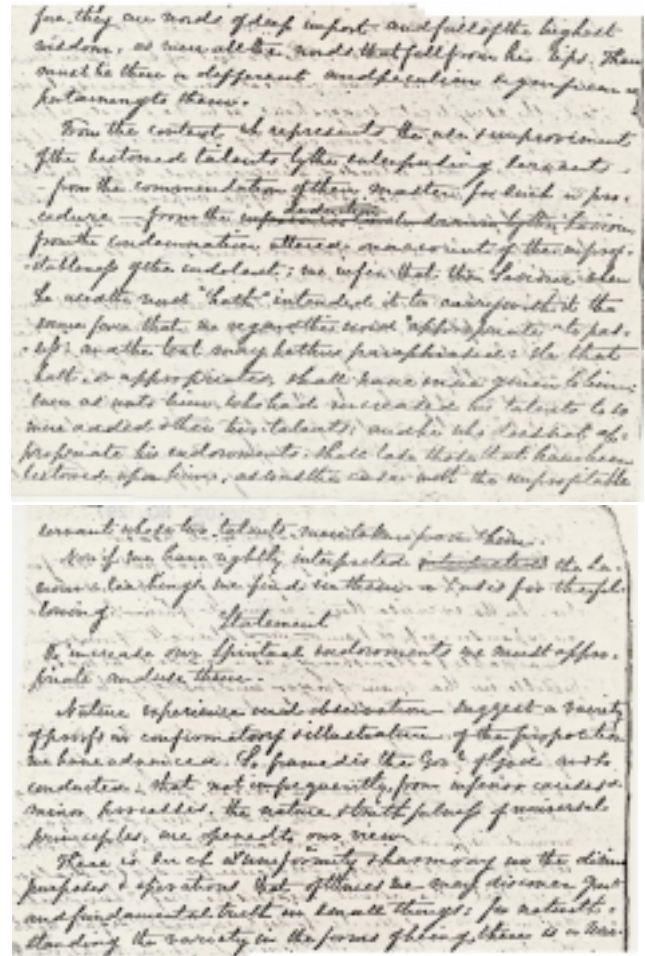 for, they are words of deep import and full of the highest
wisdom, as were all the words that fell from his lips. There
must be then a different and peculiar significance
pertaining to them.
From the context wh represents the use & improvement
of the bestowed talents by the enterprising servants
- from the commendation of their master for such a pro-
cedure — from the deduction by the Saviour
from the condemnation uttered on account of the unprof-
itableness of the indolent; we infer that the Saviour when
he used the word "hath" intended it to carry with it the
same force that we regard the word "appropriate" to pos-
ess; and the text may be thus paraphrased: He that
hath, or appropriates, shall have more given to him;
even as unto him, who had increased his talents to
were added others his talents; and he who does not ap-
propriate his endowments: shall lose those that have been
bestowed upon him, as was the case with the unprofitable
servant whose two talents were taken from him.
Now if we have rightly interpreted the Sa-
viour's teachings we find in them a basis for the fol-
lowing Statement
To increase our Spiritual endowments we must appro-
priate and use them.
Nature experience and observation suggest a variety
of proofs in confirmatory & illustration of the proposition
we have advanced. So framed is the Gov.t of God and so
conducted, that not unfrequently, from inferior causes &
minor processes, the nature & truthfulness of universal
principles, are opened to our view.
There is such a uniformity & harmony in the divine
purposes & operations that oftimes we may discover great
and fundamental truth in small things; for notwith-
standing the variety in the forms of being, there is a